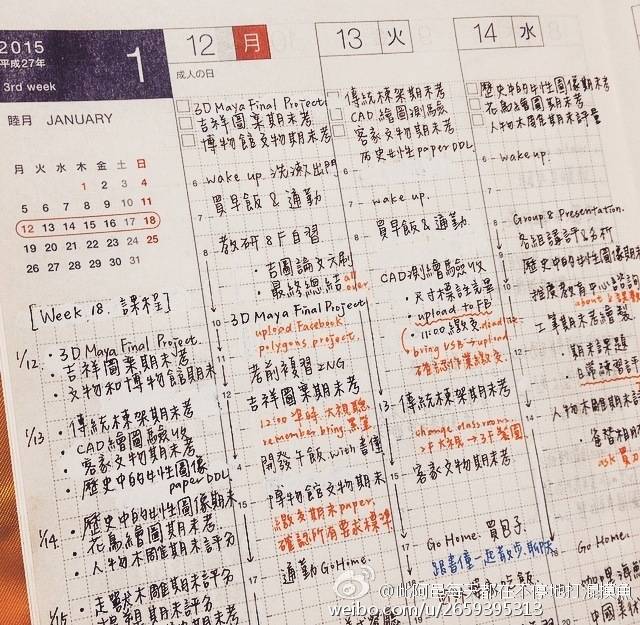 2015
平成27年
3rd week
1
睦月 JANUARY
月 火 水 木 金 土 日
1 2 3 4
5 6 7 8 9 10 11
12 13 14 15 16 17 18
19 20 21 22 23 24 25
26 27 28 29 30 31
[Week 18. 課程]
1/12 · 3D Maya Final Project.
· 吉祥圖案期末考
· 文物和博物館期末
1/13 · 傳統棟架期末考
· CAD繪圖驗收
· 客家文物期末考
· 歷史中的女性圖像
paper DDL
1/14 · 歷史中的女性圖像期末
· 花鳥繪圖期末考
· 人物木雕期末評分
1/15 · 走獸木雕期末評分
12 月
成人の日
3D Maya Final Project
吉祥圖案期末考
博物館文物期末考
6 wake up 洗漱出門
買早飯 & 通勤
8 教研 8F 自習
· 吉圖論文
· 最終總結
all over
10 3D Maya Final Project
upload Facebook
polygons project.
11 考前複習 ING
吉祥圖案期末考
12:00 準時
remember bring
開發午飯 with 書僮
15 博物館文物期末
繳交期末paper.
確認所有要求標準
17 通勤 Go Home.
13 火
傳統棟架期末考
CAD 繪圖測驗
客家文物期末考
歷史女性 paper DDL
6
7 wake up.
8 買早飯 & 通勤
CAD測繪驗收
· 尺寸標註完畢
· upload to FB
· 11:00 繳交
bring USB → upload
確認作業繳交
13 傳統棟架期末考
change classroom
15 客家文物期末考
17 Go Home. 買包子
跟書僮一起散步聊天
14 水
歷史中的女性圖像期末考
花鳥繪圖期末考
人物木雕期末評量
6 wake up.
8 Group 8 Presentation.
各組講評&分析
歷史中的女性圖像期末
推廣教育中心
工筆期末繪製
· 期末課題
日常練習評
人物木雕期末評
Go Home.
weibo.com/u/2659395313